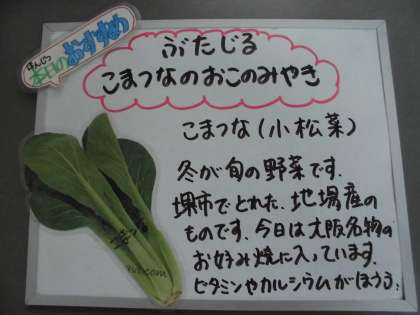 ほんじつ
本日のおすすめ
ぶたじる
こまつなのおこのみやき
こまつな(小松菜)
冬が旬の野菜です。
堺市でとれた、地場産の
ものです。今日は大阪名物の
お好み焼に入っています。
ビタミンやカルシウムがほうふ。